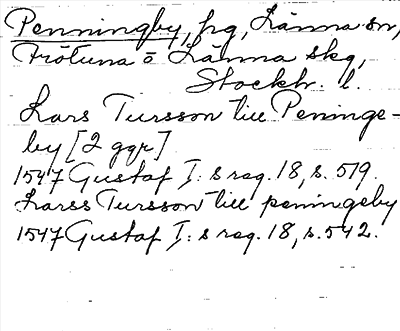 Penningby, hg, Länna sn,
Frötuna o Länna skg,
Stockh. l.
Lars Tursson till Penings-
by [2 ggr]
1547 Gustaf I:s reg. 18, s. 519.
Larss Tursson till peningeby
1547 Gustaf I:s reg. 18, s. 542.